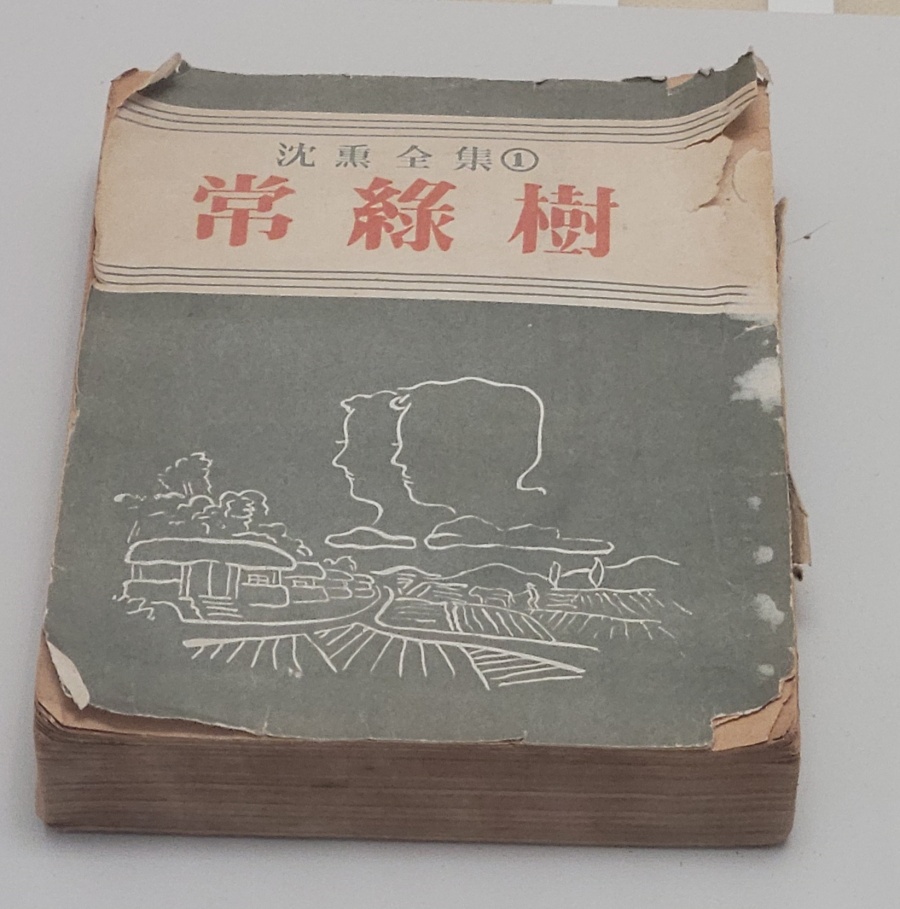 沈熏全集①
常綠樹